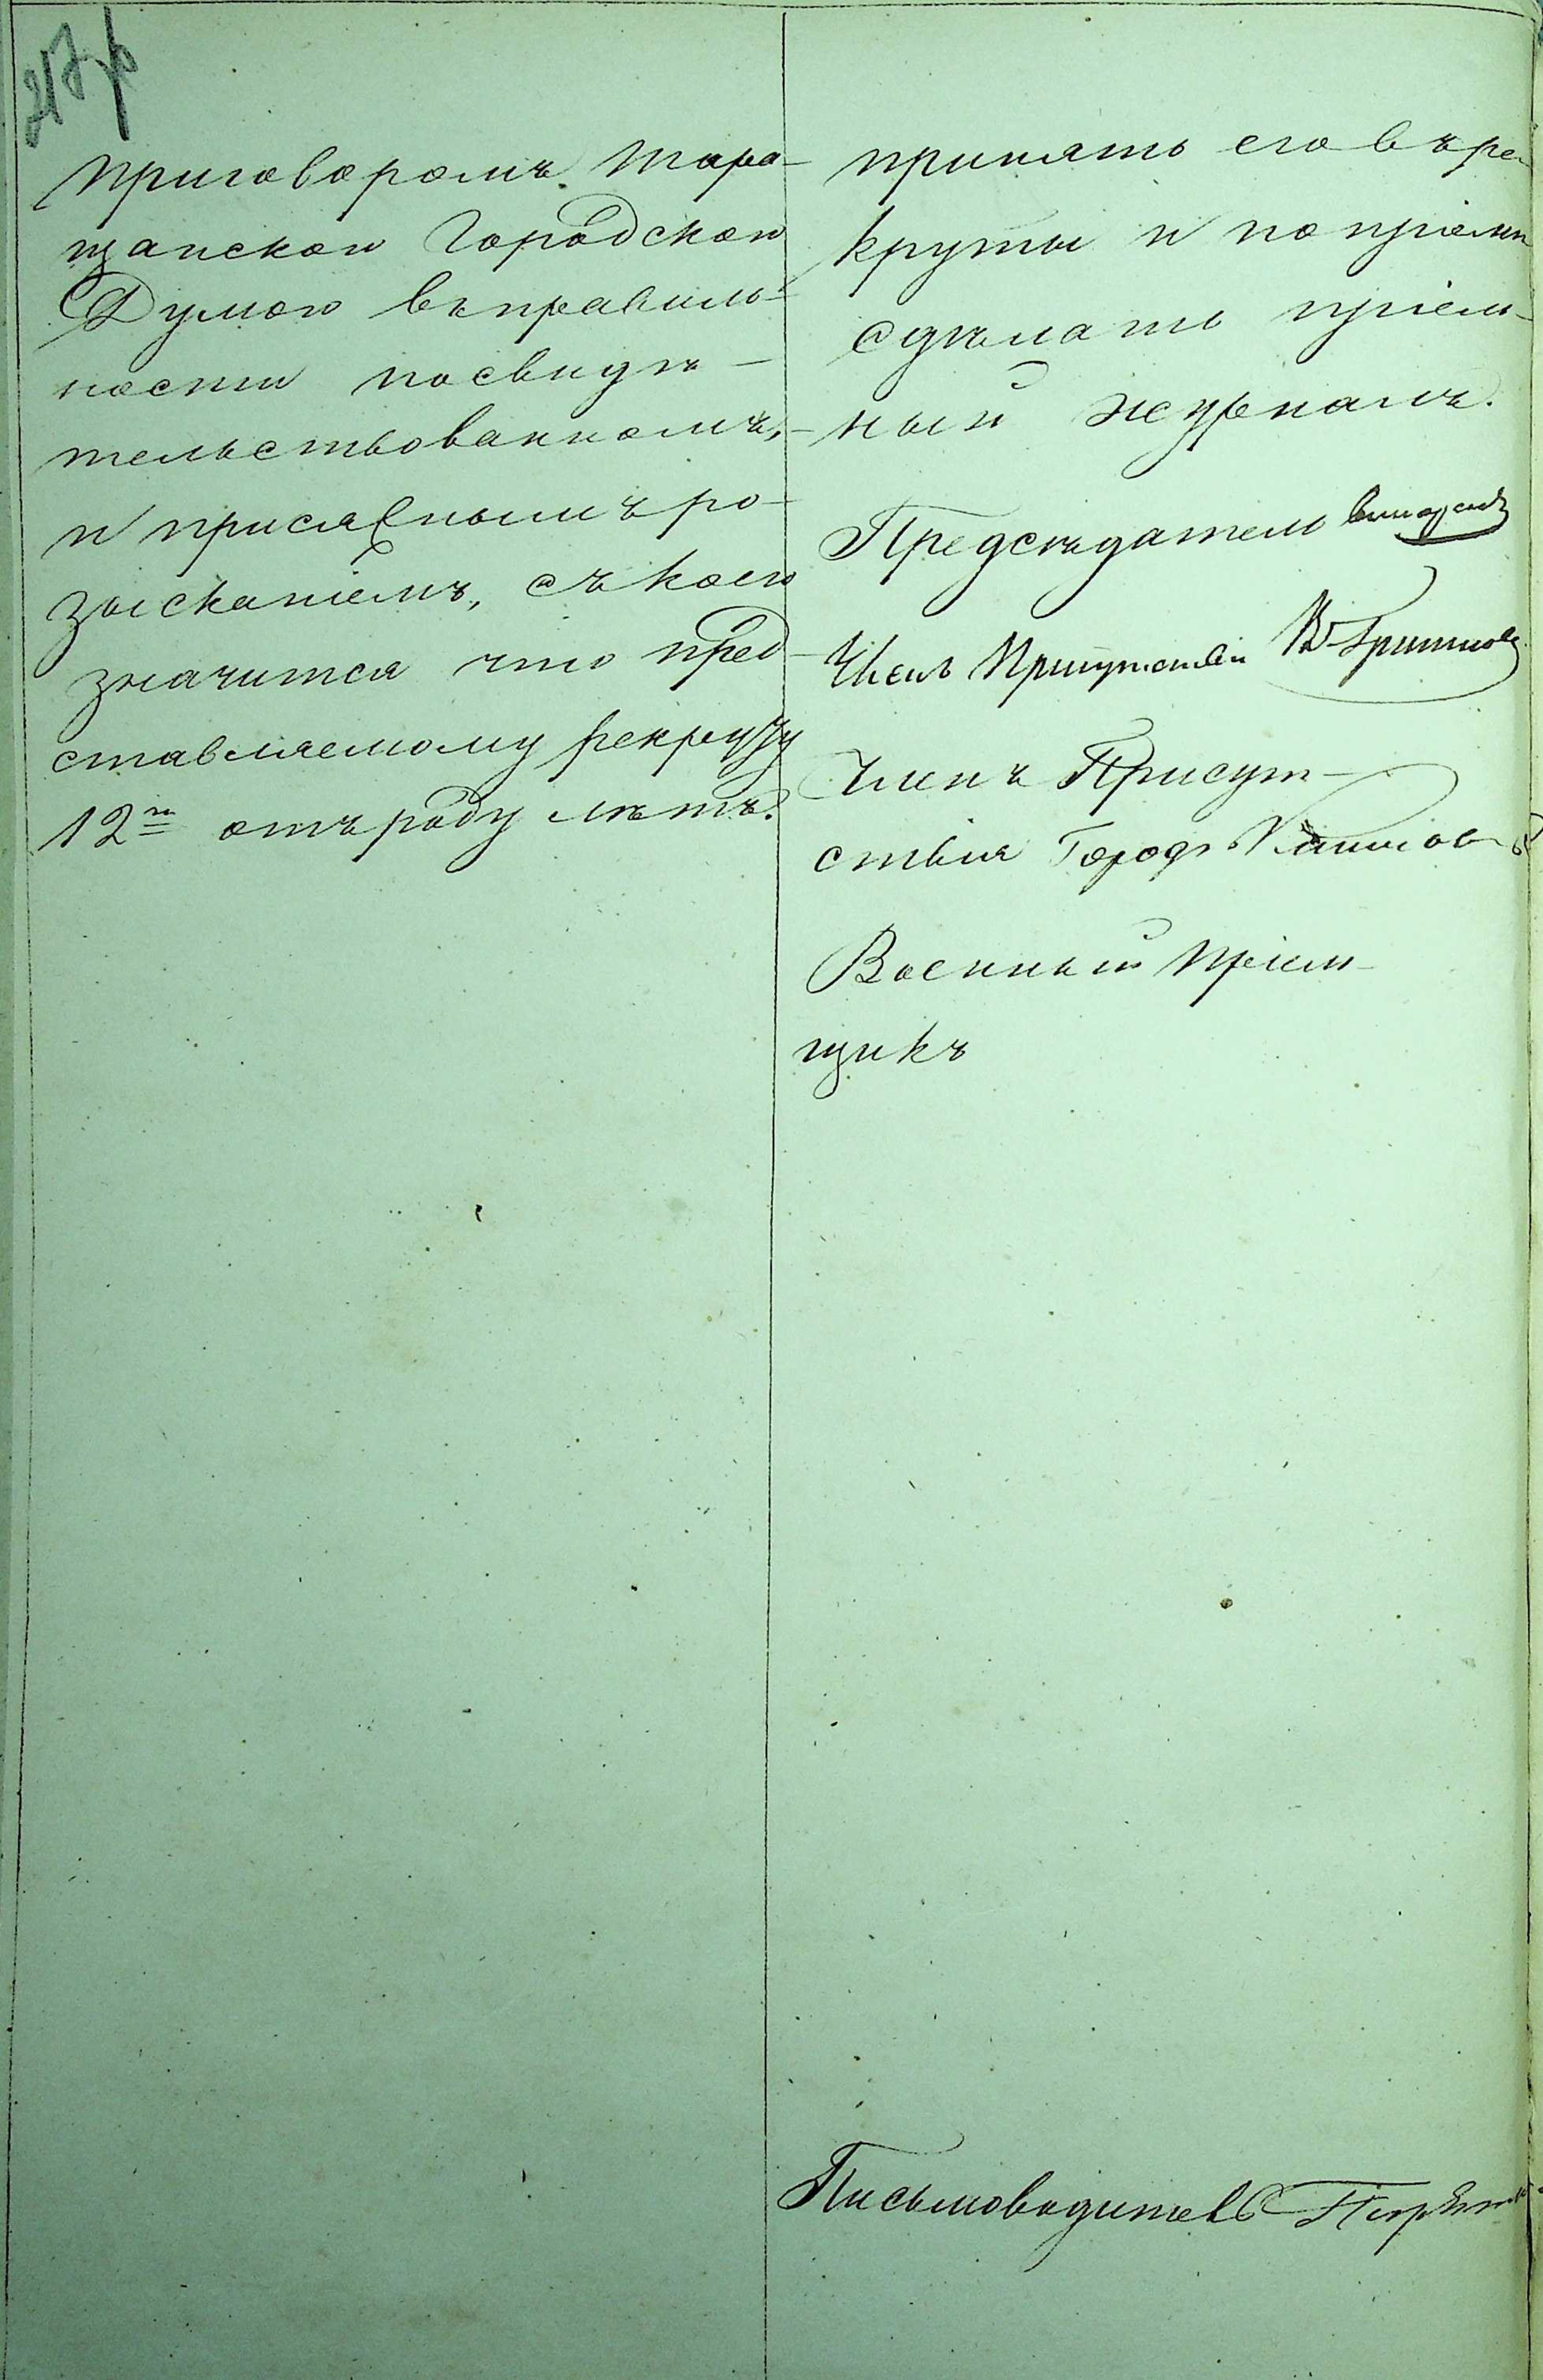 приговоромъ Тара-
щанскою Городскою
Думою въ правиль-
ности посвидѣ-
тельствованномъ,
и присяжнымъ ро-
зысканіемъ, съ коего
значится что пред-
ставляемому рекруту
12ти отъ роду лѣтъ.
принять его въ ре-
круты и по пріемѣ
сдѣлать пріем-
ный журналъ.
Предсѣдатель
Членъ Присутствія
Членъ Присут-
ствія Город.
Военный Пріем-
щикъ
Письмоводитель